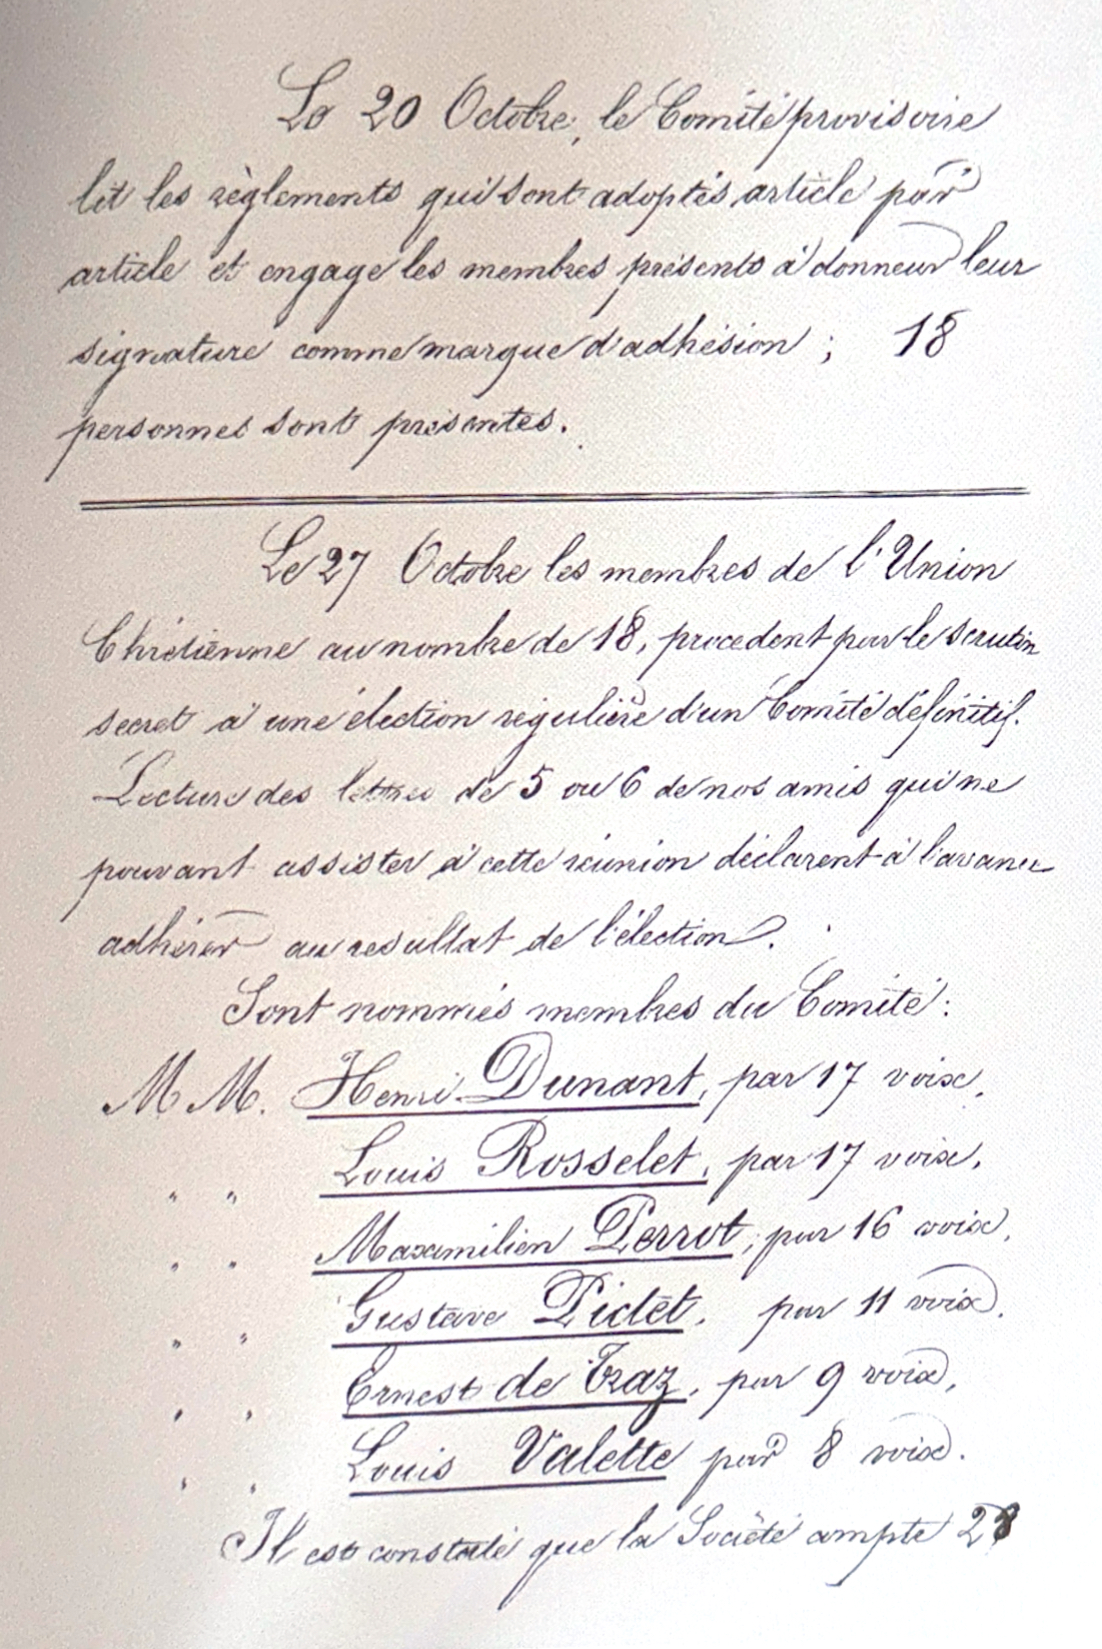 Le 20 Octobre, le Comité provisoire
lit les règlements qui sont adoptés article par
article et engage les membres présents à donneur leur
signature comme marque d'adhésion ; 18
personnes sont présentes.
Le 27 Octobre les membres de l'Union
Chrétienne au nombre de 18, procedent par le scrutin
secret à une élection régulière d'un Comité définitif.
Lecture des lettres de 5 ou 6 de nos amis qui ne
pouvant assister à cette réunion déclarent à l'avance
adhérer au resultat de l'élection.
Sont nommés membres du Comité :
M M. Henri Dunant, par 17 voix,
" " Louis Rosselet, par 17 voix,
" " Maximilien Perrot, par 16 voix,
" " Gustave Pictet, par 11 voix,
" " Ernest de Traz, par 9 voix,
" " Louis Valette par 8 voix.
Il est constaté que la Société compte